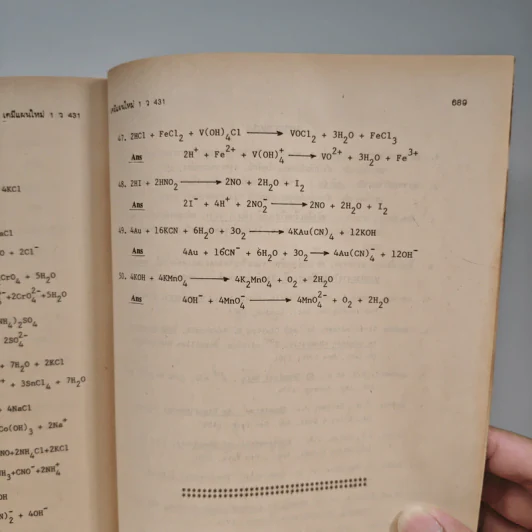 เคมีแผนใหม่ 1 ว 431
4KCl
aCl
O + 2Cl⁻
CrO₄ + 5H₂O
+2CrO₄²⁻+5H₂O
NH₄)₂SO₄
2SO₄²⁻
+ 7H₂O + 2KCl
+ 3SnCl₄ + 7H₂O
+ 4NaCl
Co(OH)₃ + 2Na⁺
NO+2NH₄Cl+2KCl
NH₃+CNO⁻+2NH₄⁺
OH
N)₂⁻ + 4OH⁻
เคมีแผนใหม่ 1 ว 431
689
47. 2HCl + FeCl₂ + V(OH)₄Cl → VOCl₂ + 3H₂O + FeCl₃
Ans 2H⁺ + Fe²⁺ + V(OH)₄⁺ → VO²⁺ + 3H₂O + Fe³⁺
48. 2HI + 2HNO₂ → 2NO + 2H₂O + I₂
Ans 2I⁻ + 4H⁺ + 2NO₂⁻ → 2NO + 2H₂O + I₂
49. 4Au + 16KCN + 6H₂O + 3O₂ → 4KAu(CN)₄ + 12KOH
Ans 4Au + 16CN⁻ + 6H₂O + 3O₂ → 4Au(CN)₄⁻ + 12OH⁻
50. 4KOH + 4KMnO₄ → 4K₂MnO₄ + O₂ + 2H₂O
Ans 4OH⁻ + 4MnO₄⁻ → 4MnO₄²⁻ + O₂ + 2H₂O